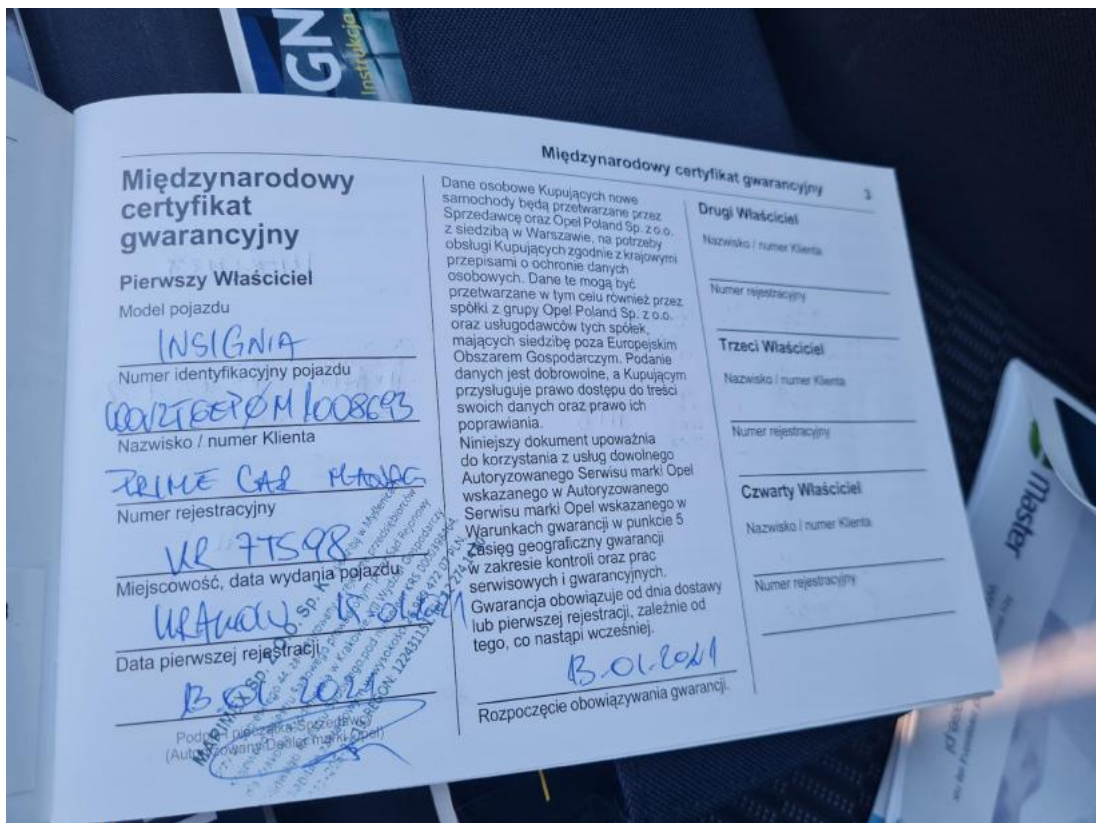 GN
Instrukcja
Międzynarodowy certyfikat gwarancyjny 3
Międzynarodowy
certyfikat
gwarancyjny
Pierwszy Właściciel
Model pojazdu
INSIGNIA
Numer identyfikacyjny pojazdu
Nazwisko / numer Klienta
PRIME CAR MANAG
Numer rejestracyjny
KR 7T598
Miejscowość, data wydania pojazdu
KRAKÓW
Data pierwszej rejestracji
13.01.2021
Podpis i pieczątka Sprzedawcy
(Autoryzowany Dealer marki Opel)
Dane osobowe Kupujących nowe
samochody będą przetwarzane przez
Sprzedawcę oraz Opel Poland Sp. z o.o.
z siedzibą w Warszawie, na potrzeby
obsługi Kupujących zgodnie z krajowymi
przepisami o ochronie danych
osobowych. Dane te mogą być
przetwarzane w tym celu również przez
spółki z grupy Opel Poland Sp. z o.o.
oraz usługodawców tych spółek,
mających siedzibę poza Europejskim
Obszarem Gospodarczym. Podanie
danych jest dobrowolne, a Kupującym
przysługuje prawo dostępu do treści
swoich danych oraz prawo ich
poprawiania.
Niniejszy dokument upoważnia
do korzystania z usług dowolnego
Autoryzowanego Serwisu marki Opel
wskazanego w Autoryzowanego
Serwisu marki Opel wskazanego w
Warunkach gwarancji w punkcie 5
Zasięg geograficzny gwarancji
w zakresie kontroli oraz prac
serwisowych i gwarancyjnych.
Gwarancja obowiązuje od dnia dostawy
lub pierwszej rejestracji, zależnie od
tego, co nastąpi wcześniej.
13.01.2021
Rozpoczęcie obowiązywania gwarancji.
Drugi Właściciel
Nazwisko / numer Klienta
Numer rejestracyjny
Trzeci Właściciel
Nazwisko / numer Klienta
Numer rejestracyjny
Czwarty Właściciel
Nazwisko / numer Klienta
Numer rejestracyjny
Master